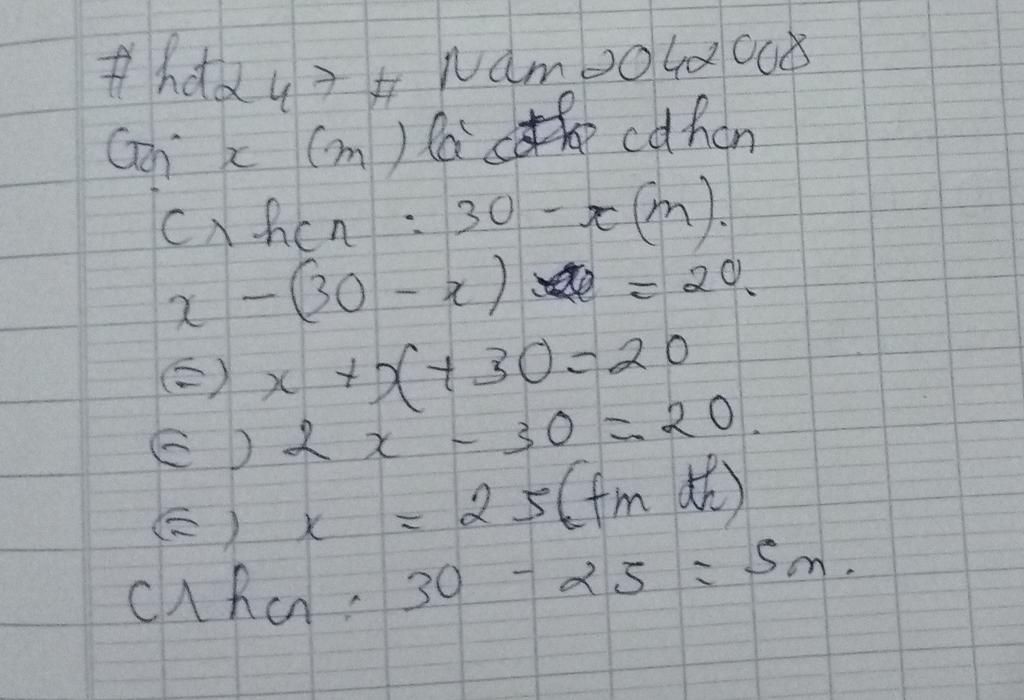 # hdt247 # Nam2042008
Gọi x (m) là cdhcn
Cλ hcn : 30 - x (m).
x - (30 - x) = 20.
(=) x + x + 30 = 20
(=) 2x - 30 = 20.
(=) x = 25 (tm đk)
Cλ hcn : 30 - 25 = 5m.